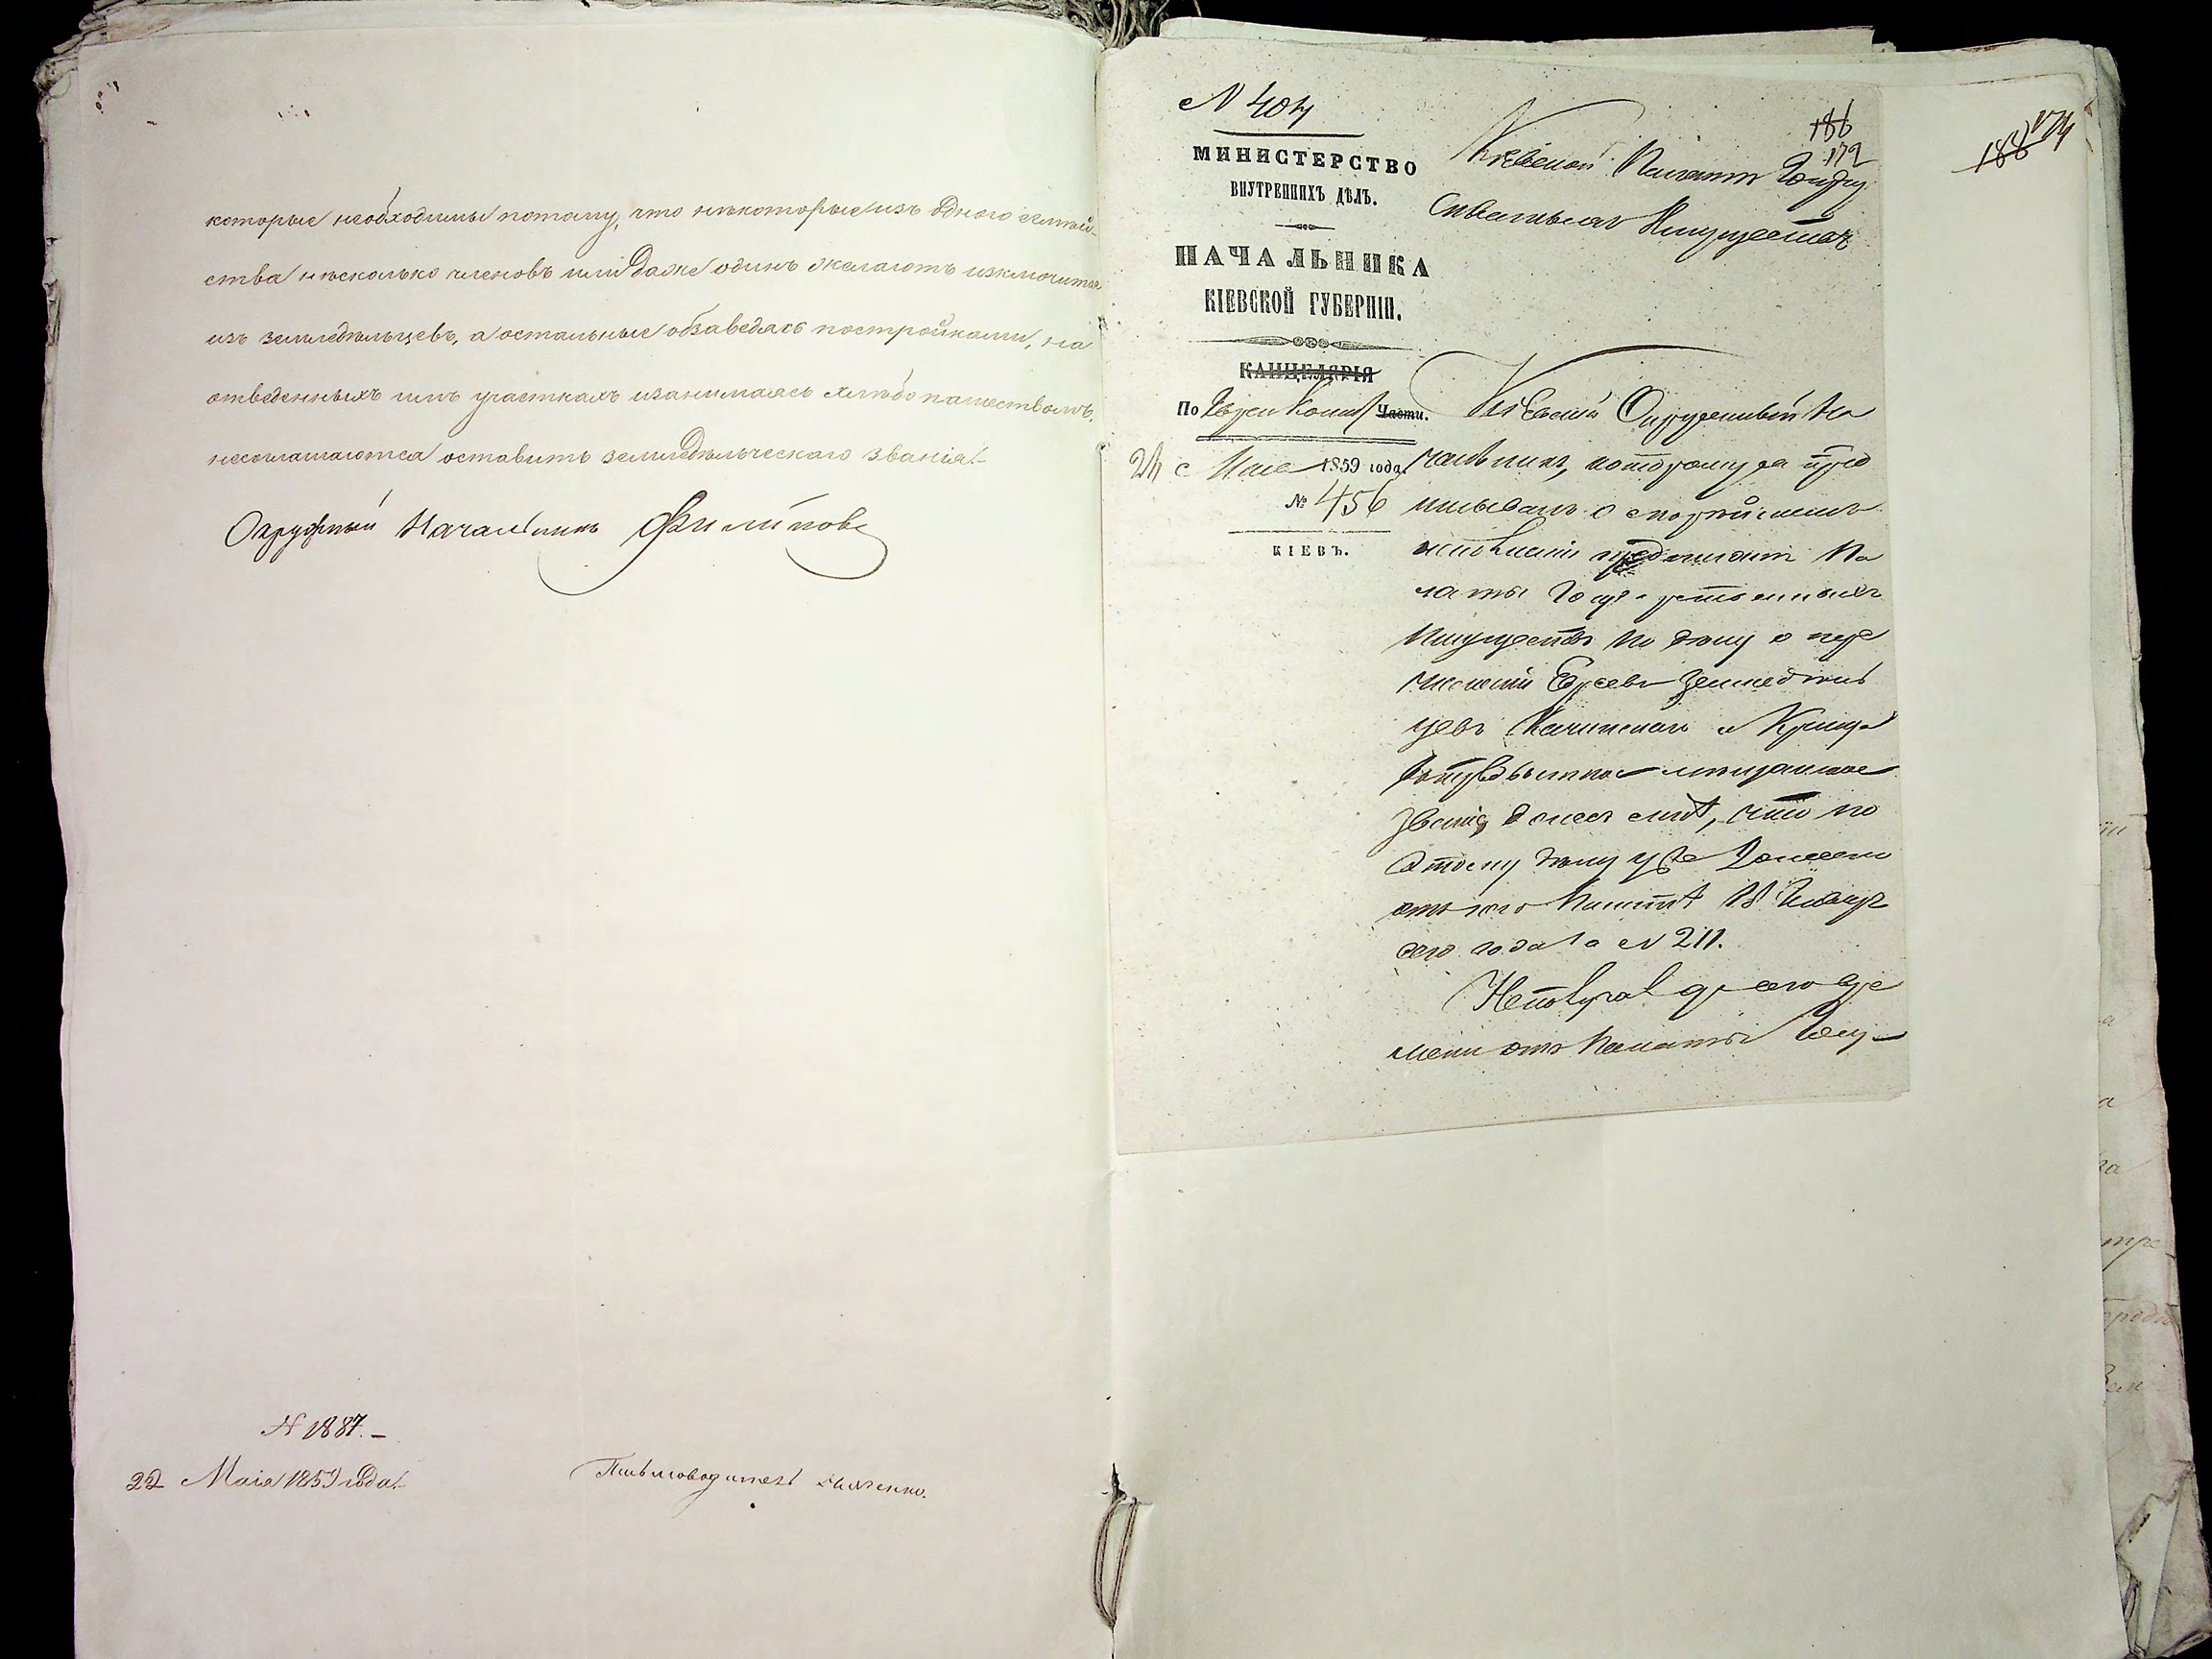 которые необходимы потому, что нѣкоторые изъ одного семѣй-
ства нѣсколько членовъ или даже одинъ желаютъ изключится
изъ земледѣльцевъ, а остальные обзаведясь постройками, на
отведенныхъ имъ участкахъ и занимаясь хлѣбопашествомъ,
несоглашаются оставить земледѣльческаго званія.-
Окружный Начальникъ Филиповъ
N 1887.-
22 Маія 1859 года.-
Письмоводитель
N 404
МИНИСТЕРСТВО
ВНУТРЕННИХЪ ДѢЛЪ.
НАЧАЛЬНИКА
КІЕВСКОЙ ГУБЕРНІИ.
КАНЦЕЛЯРІЯ
По Части.
24 Мая 1859 года
№ 456
КІЕВЪ.
186
179
188 174
Кіевской Палатѣ Госуду
Имуществъ
Кіевскій Окружный На
чальникъ, которому
о скорѣйшемъ
исполненіи Па
латы Государственныхъ
Имуществъ по дѣлу о пере
численіи Евреевъ Земледѣль
цевъ и
мѣщанское
званіе донесъ мнѣ, что по
этому дѣлу уже донесено
отъ него Палатѣ
сего года за N 211.
сего вре
мени отъ Палаты Госу-